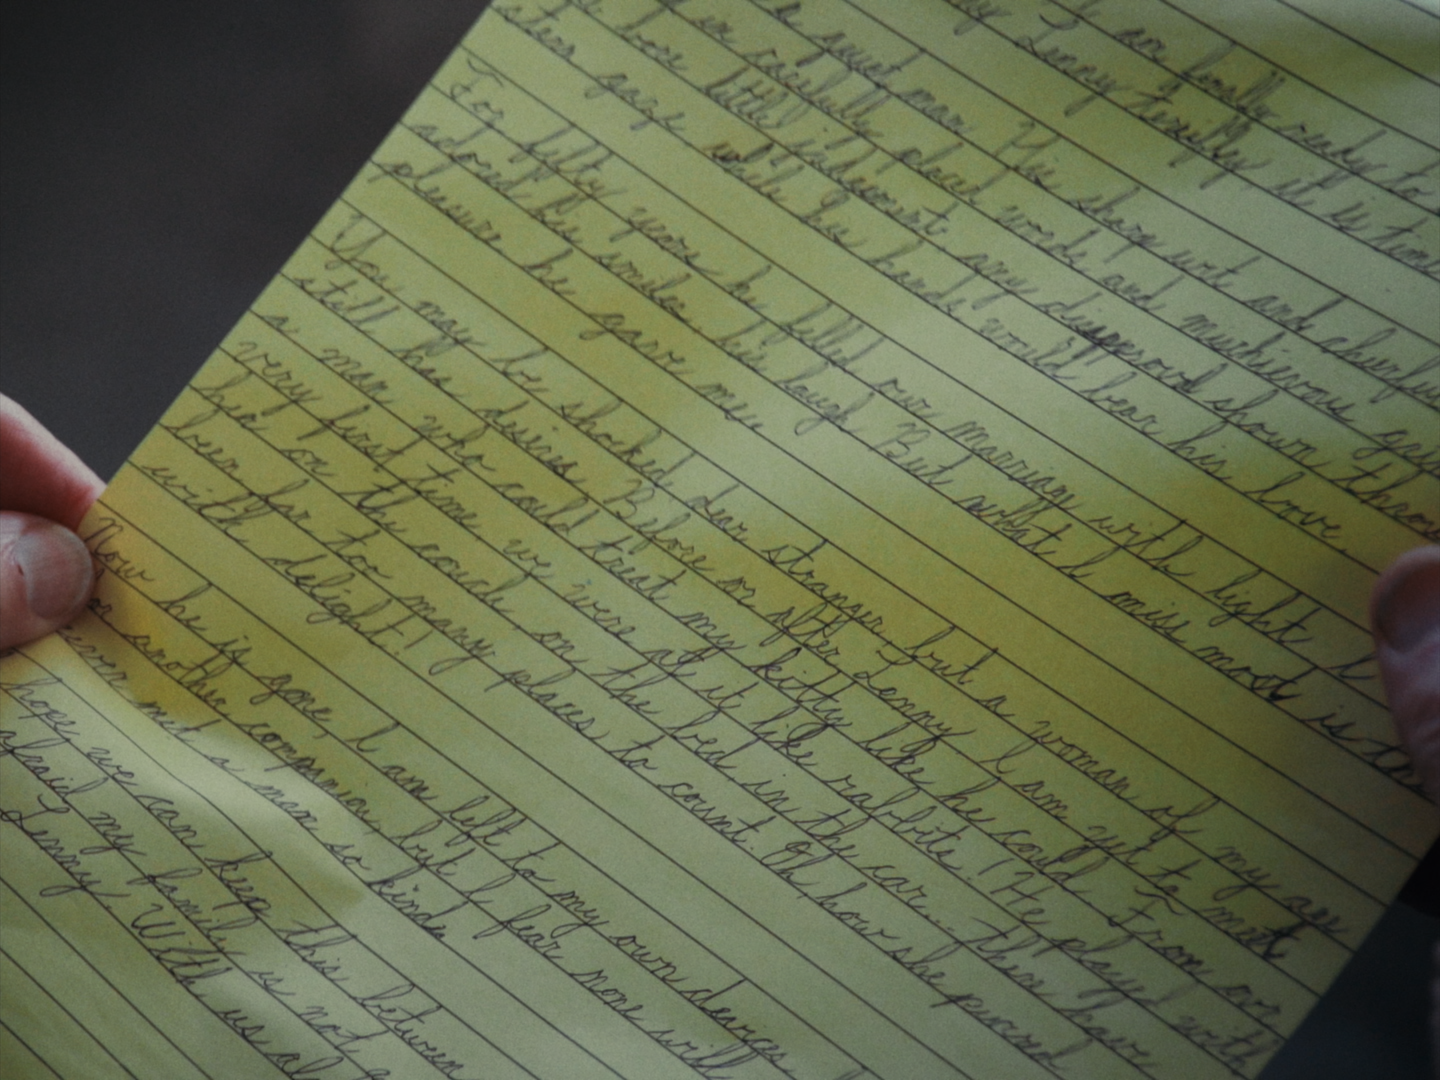 I am finally ready to
my Lenny terribly it is time
a quiet man. His sharp wit and cheerful
in carefully placed words and mischievous gaze
bore little indecent. any disapproval shown through
stern gaze while his hands would bear his love.
For fifty years he filled our marriage with light. I
adored his smiles, his laugh. But what I miss most is th
pleasure he gave me.
You may be shocked dear stranger, but a woman of my age
still has desires. Before or after Lenny I am yet to meet
a man who could treat my kitty like he could. From our
very first time we were at it like rabbits! He played with
her on the couch, on the bed in the car... there have
been far too many places to count. Oh how she purred
with delight!
Now he is gone, I am left to my own devices
or another companion, but I fear none will
never met a man so kind.
hope we can keep this between
afraid my family is not
Lenny. With us al